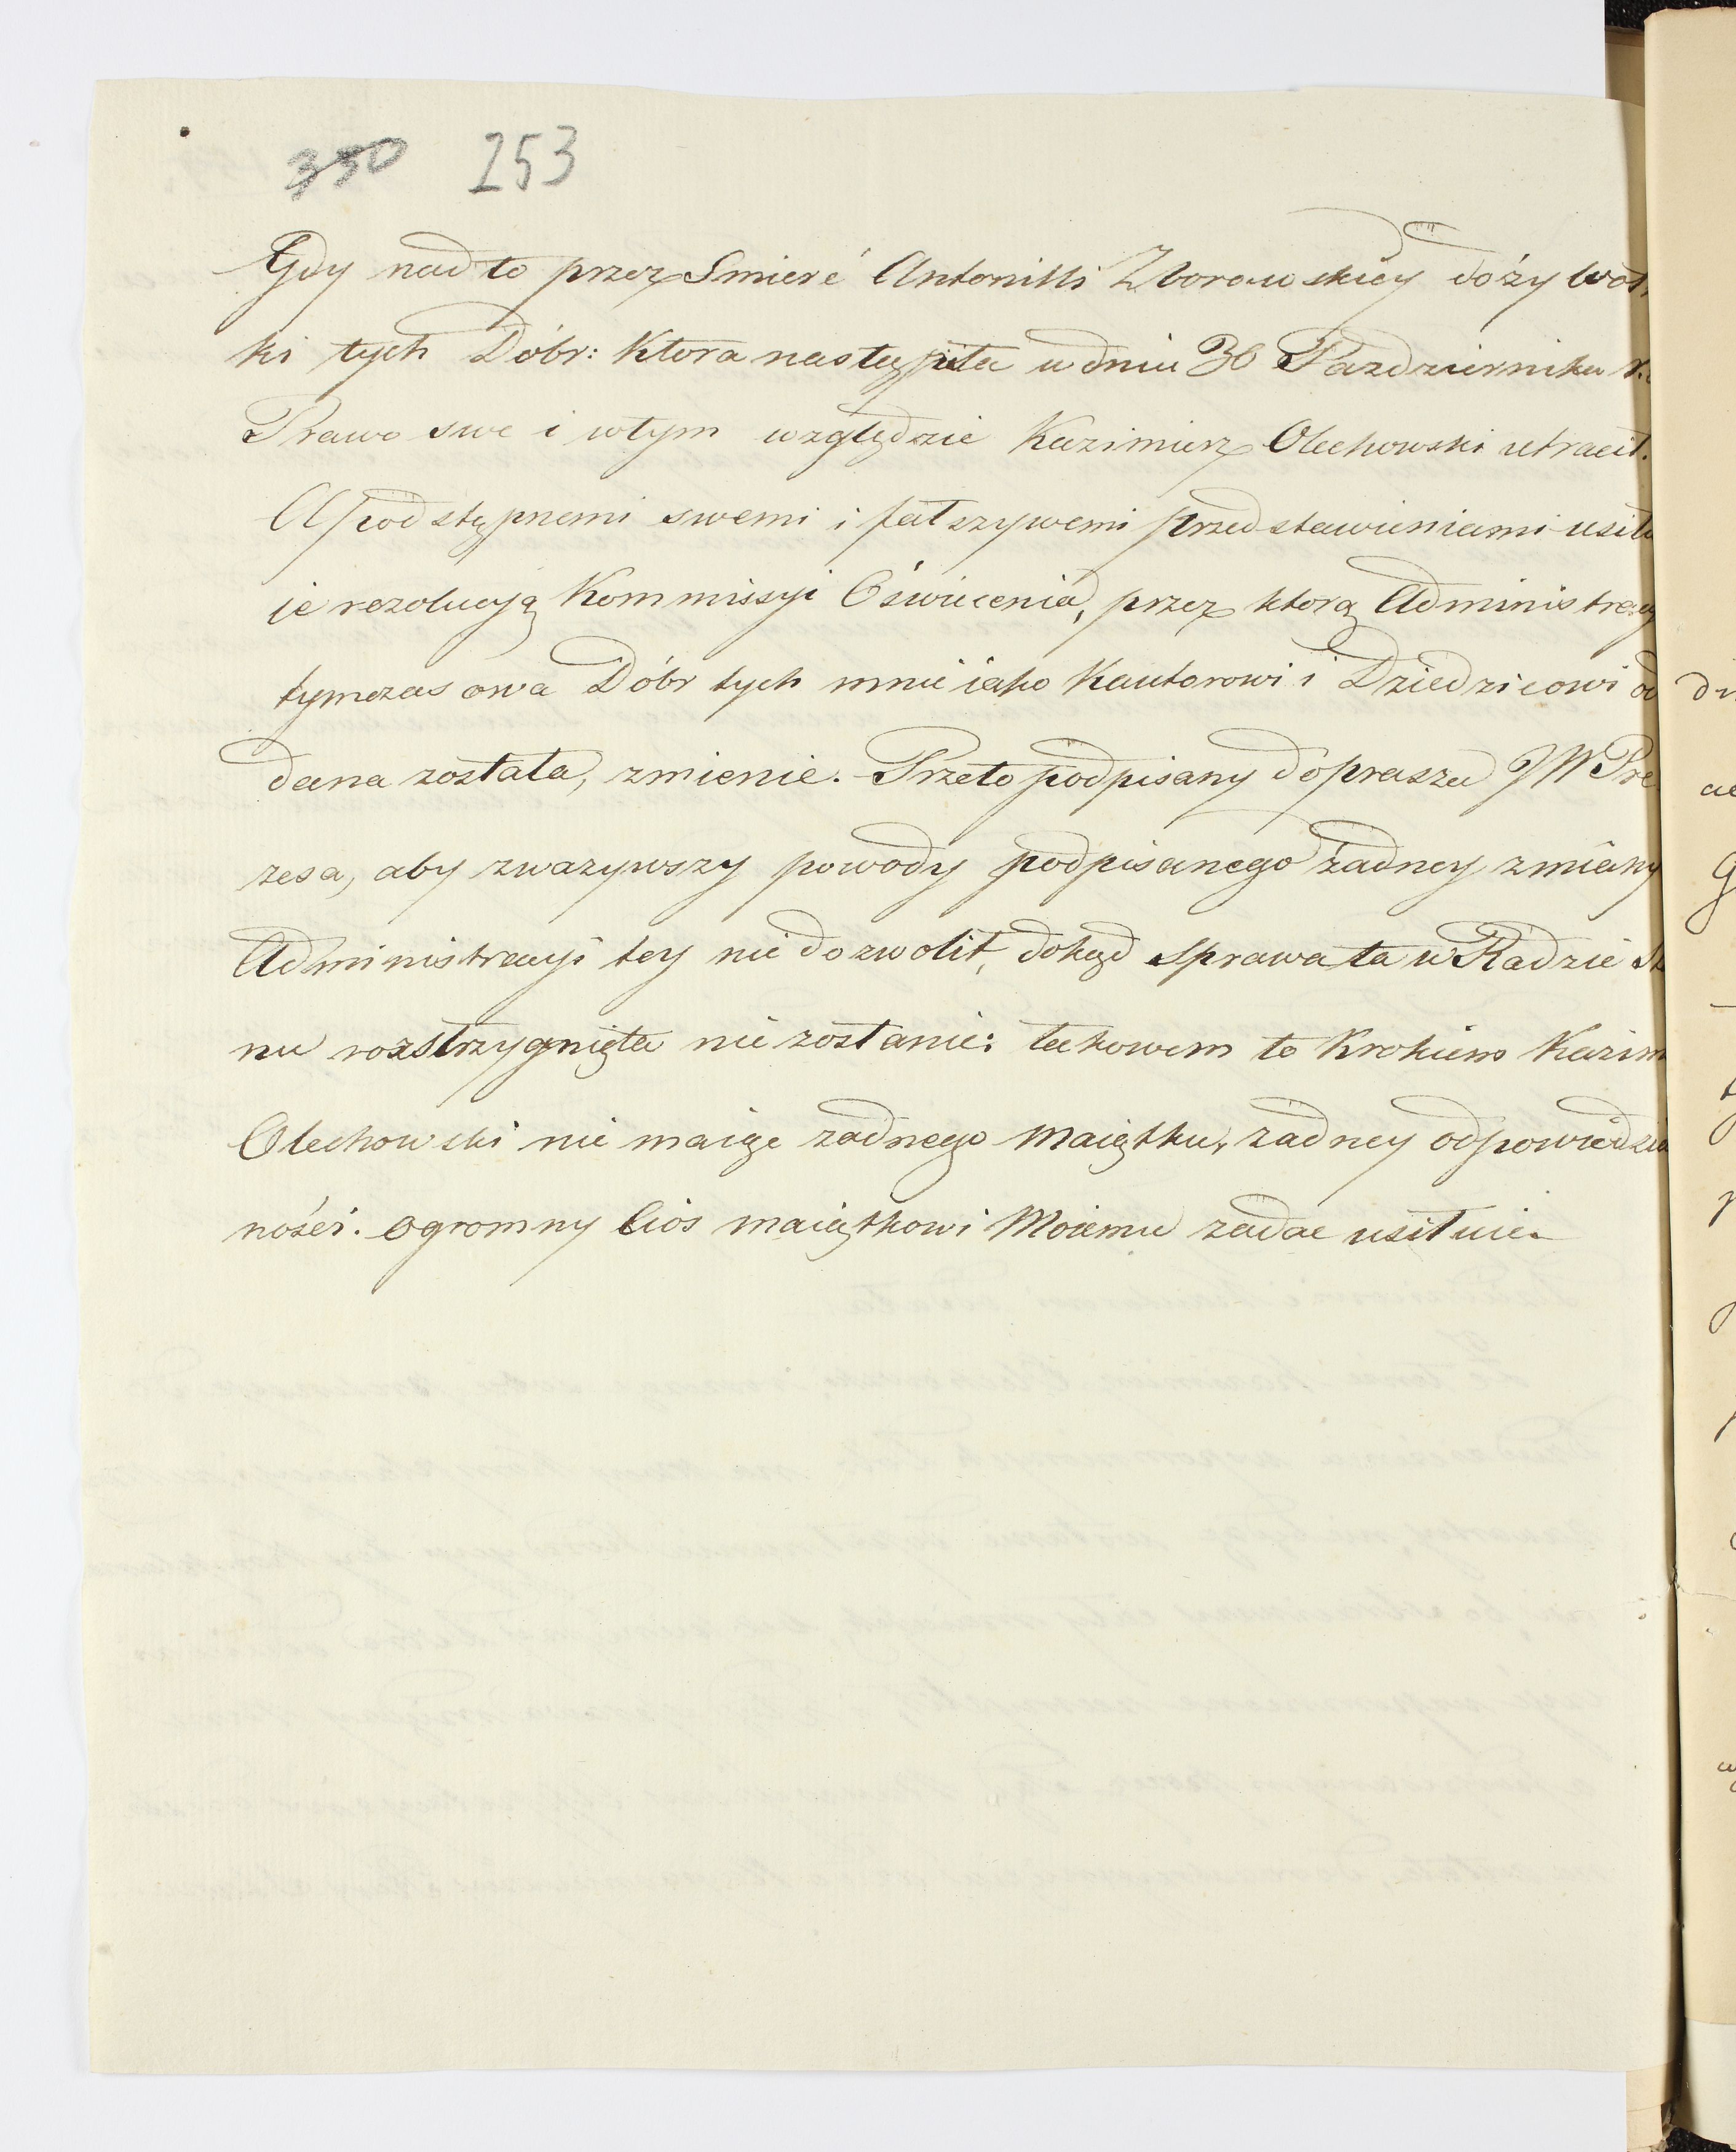 350 253
Gdy nad to przez Smierć Antonilli Zborowskiey doży wot
ki tych Dóbr: Ktora nastąpiła w dniu 30 Pazdziernika r.
Prawo swe i wtym względzie Kazimierz Olechowski utracił.
A podstępnemi swemi i fałszywemi przedstawieniami usiłu
ie rezolucyą Kommissyi Oświecenia, przez ktorą Administracy
tymczasowa Dóbr tych mnie iako Kautorowi i Dziedzicowi od
dana została, zmienie. Przeto podpisany doprasza JW Pre
zesa, aby zwazywszy powody podpisanego żadney zmiany
Administracyi tey nie dozwolił, dokąd sprawa ta w Radzie St
nu rozstrzygnięta nie zostanie: takowem to Krokiem Kazim
Olechowski nie maiąc zadnego Maiątku, zadney odpowiedzia
ności. ogromny Cios maiątkowi Moiemu zadac usiłuie.